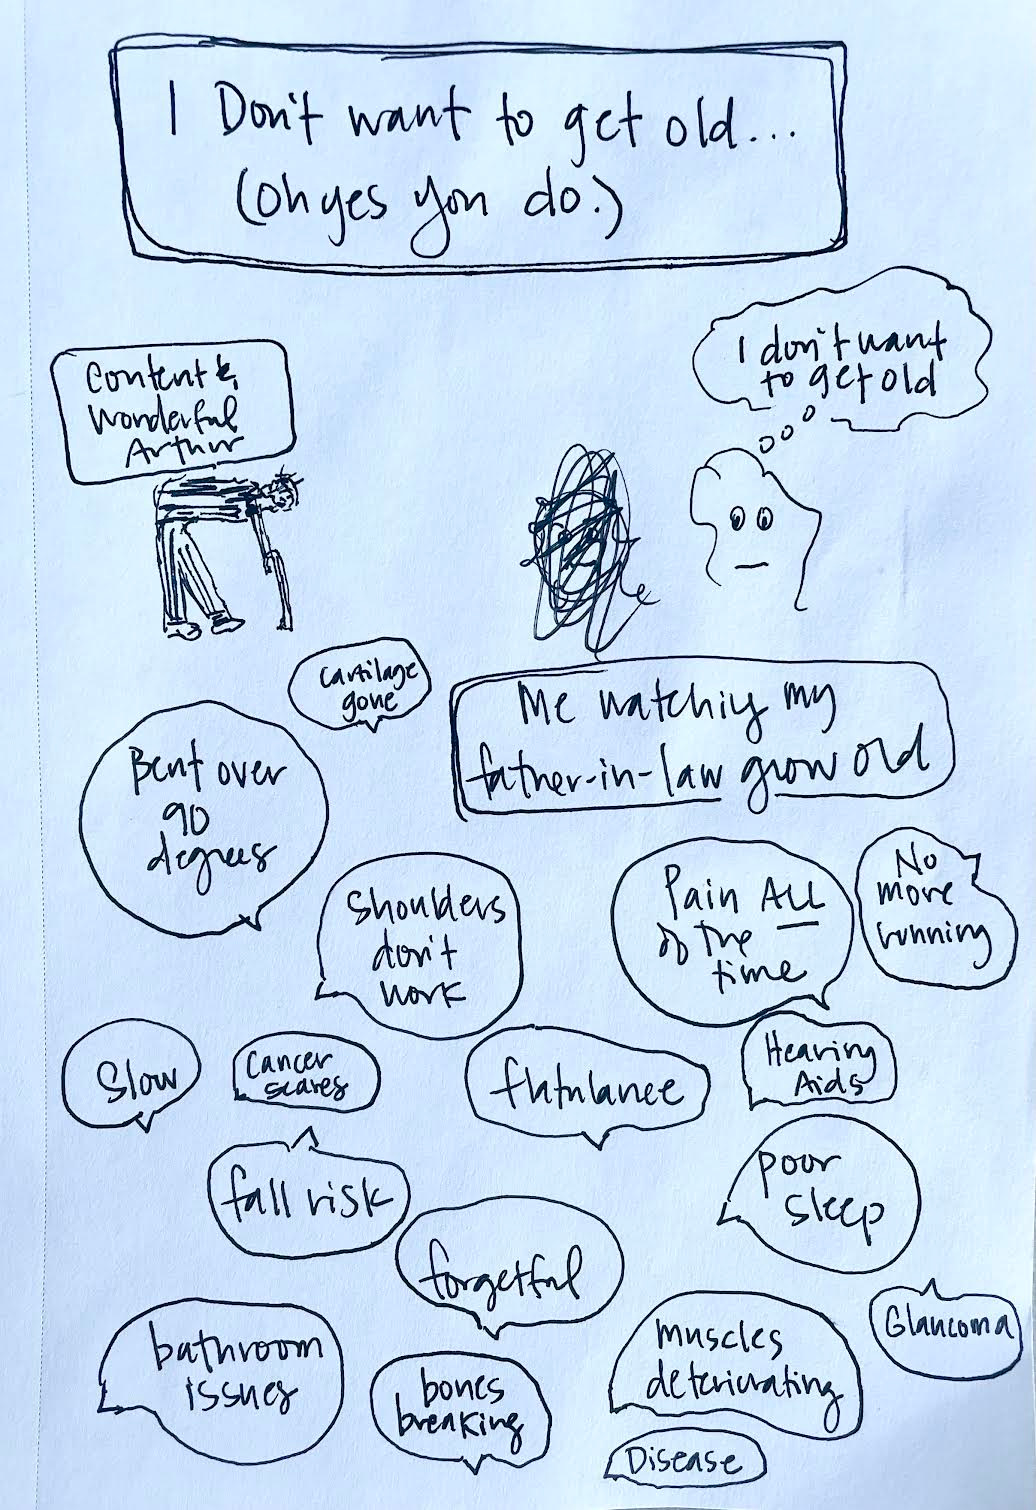 I Don't want to get old...
(oh yes you do.)
Content &
Wonderful
Arthur
I don't want
to get old
Me watching my
father-in-law grow old
Cartilage
gone
Bent over
90
degrees
Shoulders
don't
work
Pain ALL
of the
time
No
more
running
Slow
Cancer
scares
flatulance
Hearing
Aids
fall risk
poor
sleep
forgetful
Glaucoma
bathroom
issues
bones
breaking
muscles
deteriorating
Disease